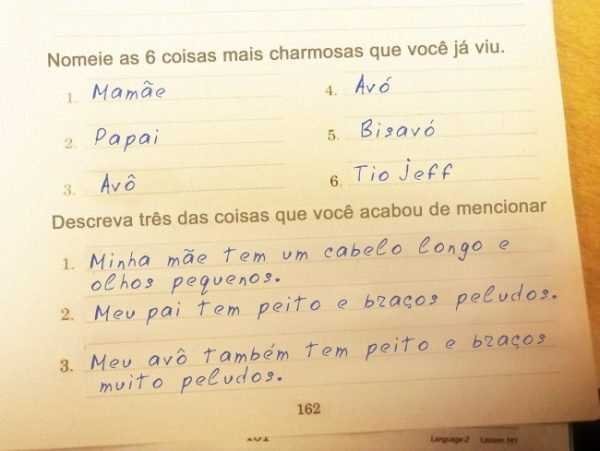 Nomeie as 6 coisas mais charmosas que você já viu.
1. Mamãe
4. Avó
2. Papai
5. Bisavó
3. Avô
6. Tio Jeff
Descreva três das coisas que você acabou de mencionar
1. Minha mãe tem um cabelo longo e
olhos pequenos.
2. Meu pai tem peito e braços peludos.
3. Meu avô também tem peito e braços
muito peludos.
162
Language 2 Lesson 101